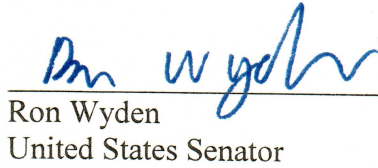 Ron Wyden
Ron Wyden
United States Senator